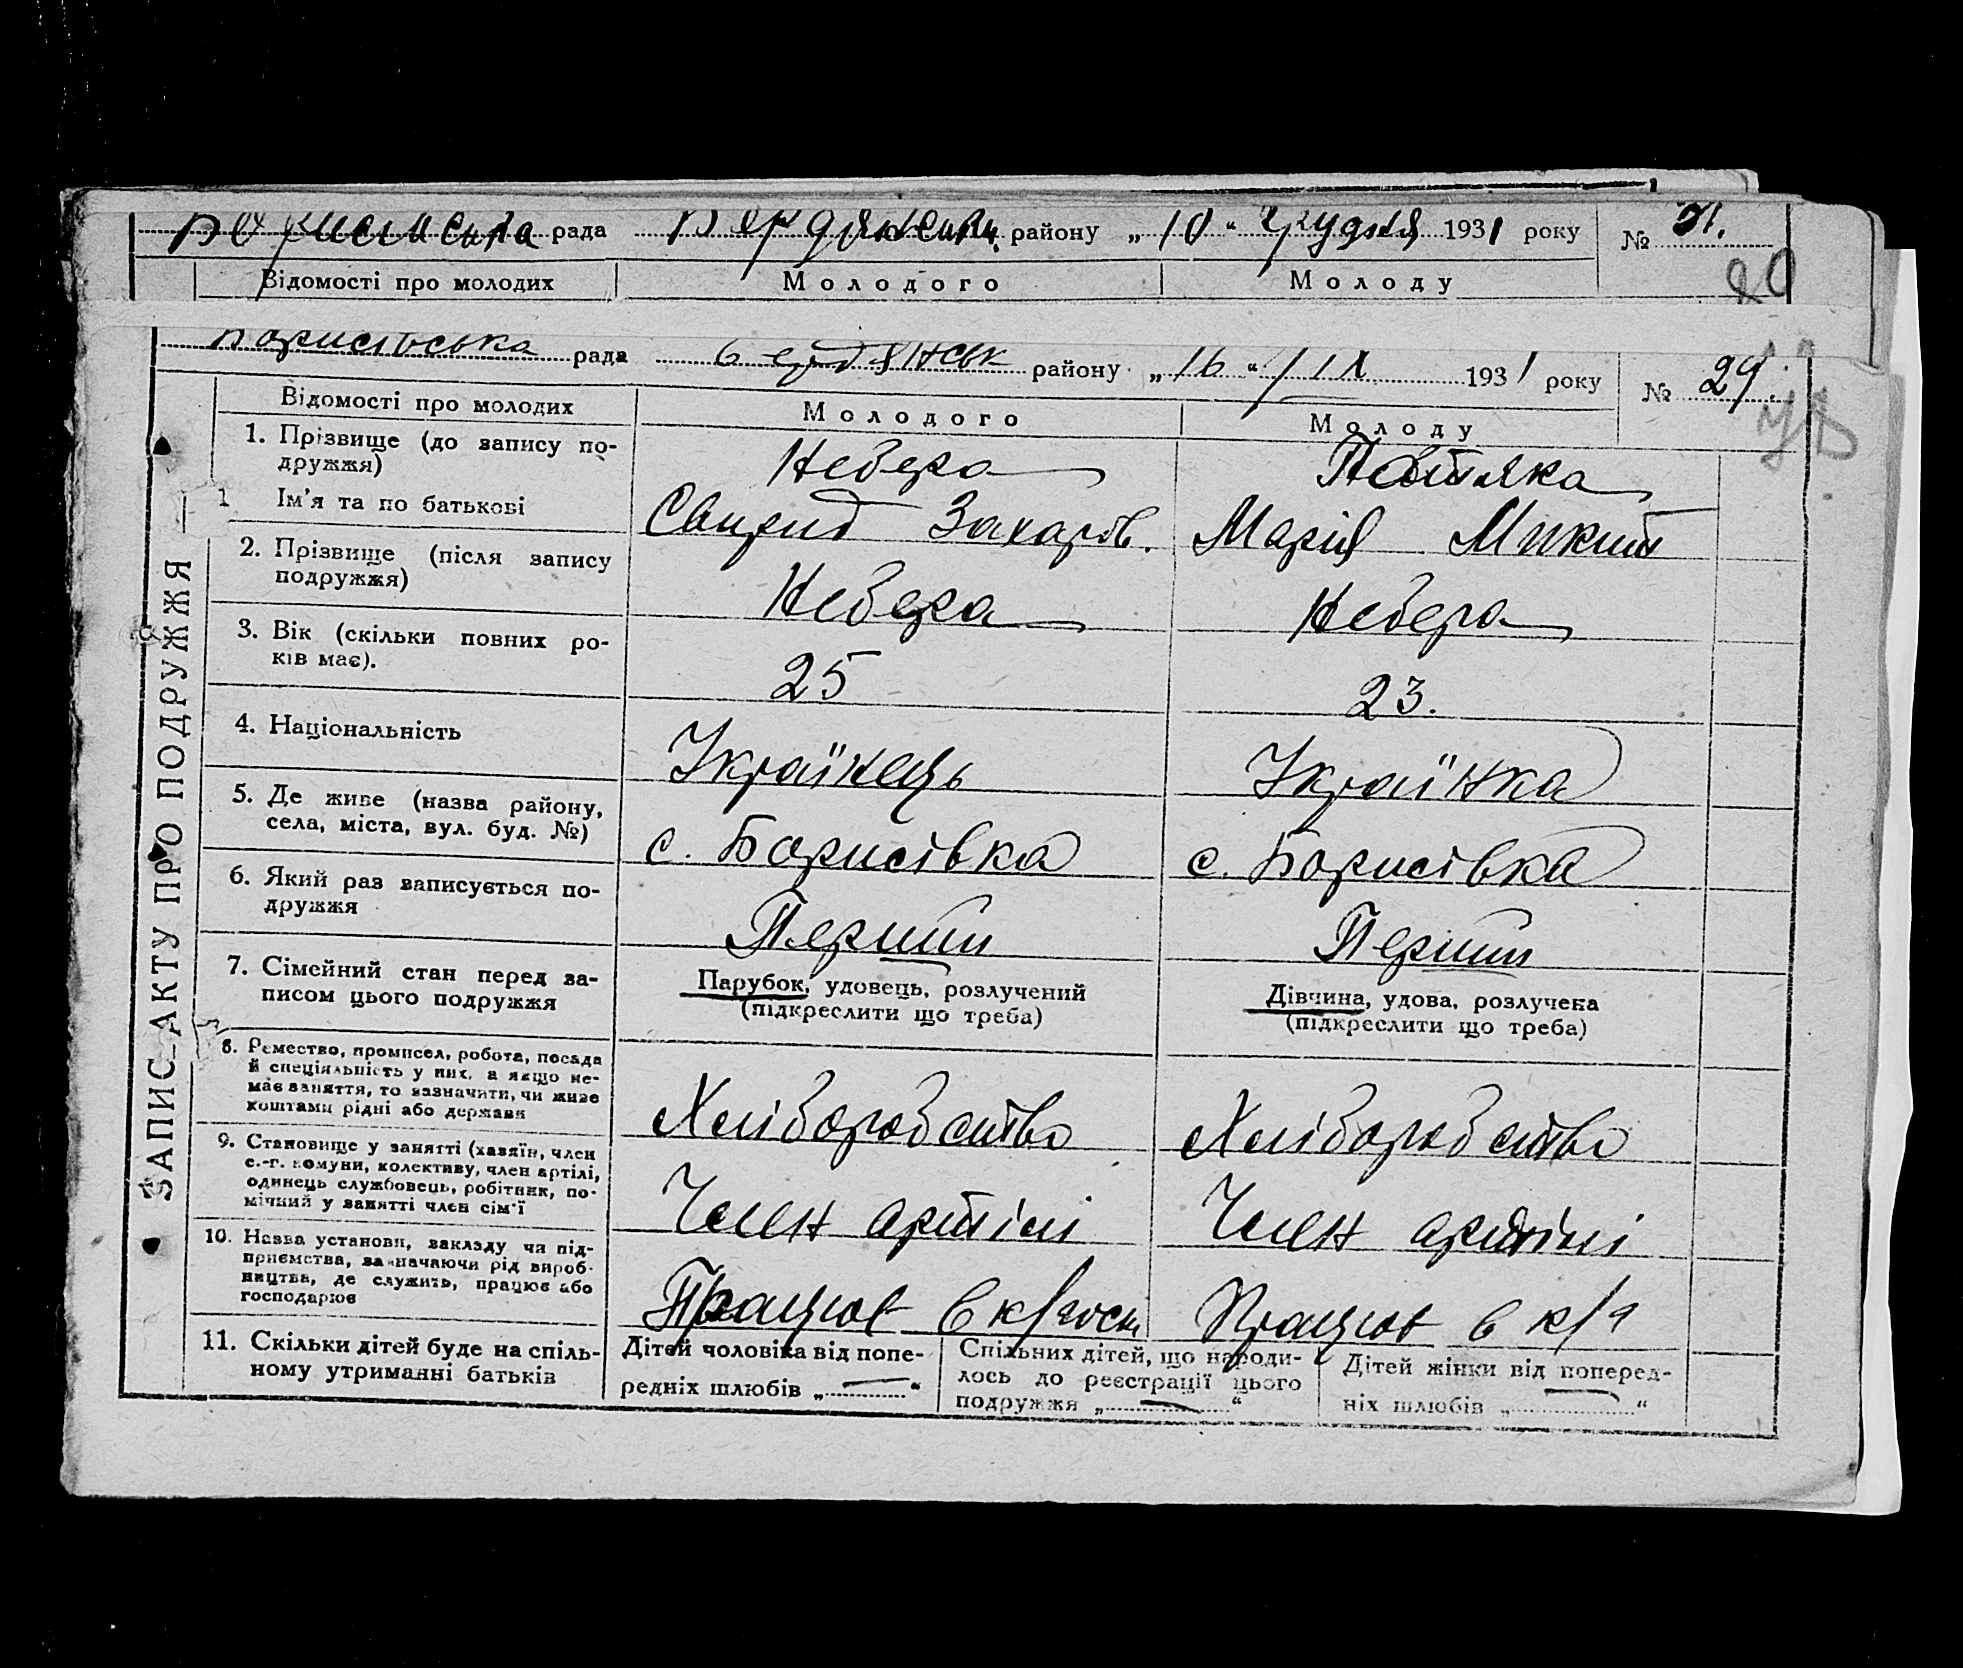 Борисівська рада Бердянськ. району „ 10 “ грудня 1931 року № 31.
20
Відомості про молодих Молодого Молоду
Борисівська рада Бердянськ району „ 16 “ / IX 1931 року № 29.
ЗАПИС АКТУ ПРО ПОДРУЖЖЯ
Відомості про молодих Молодого Молоду
1. Прізвище (до запису по-
дружжя) Небера
Ім'я та по батькові Свирид Захаров. Марія Микит
2. Прізвище (після запису
подружжя) Небера Небера
3. Вік (скільки повних ро-
ків має). 25 23.
4. Національність Українець Українка
5. Де живе (назва району,
села, міста, вул. буд. №) с. Борисівка с. Борисівка
6. Який раз записується по-
дружжя Перший Перший
7. Сімейний стан перед за-
писом цього подружжя
Парубок, удовець, розлучений
(підкреслити що треба)
Дівчина, удова, розлучена
(підкреслити що треба)
8. Ремество, промисел, робота, посада
й спеціяльність у них, а якщо не-
має заняття, то зазначити, чи живе
коштами рідні або держави
Хліборобство Хліборобство
9. Становище у занятті (хазяїн, член
с.-г. комуни, колективу, член артілі,
одинець службовець, робітник, по-
мічний у занятті член сім'ї
Член артілі Член артілі
10. Назва установи, закладу чи під-
приємства, зазначаючи рід вироб-
ництва, де служить, працює або
господарює
Працює в к/госп Працює в к/г
11. Скільки дітей буде на спіль-
ному утриманні батьків
Дітей чоловіка від попе-
редніх шлюбів „ — “
Спільних дітей, що народи-
лось до реєстрації цього
подружжя „ — “
Дітей жінки від поперед-
ніх шлюбів „ — “